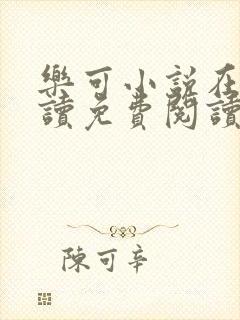 樂可小説在
讀免費閱讀
陳可辛